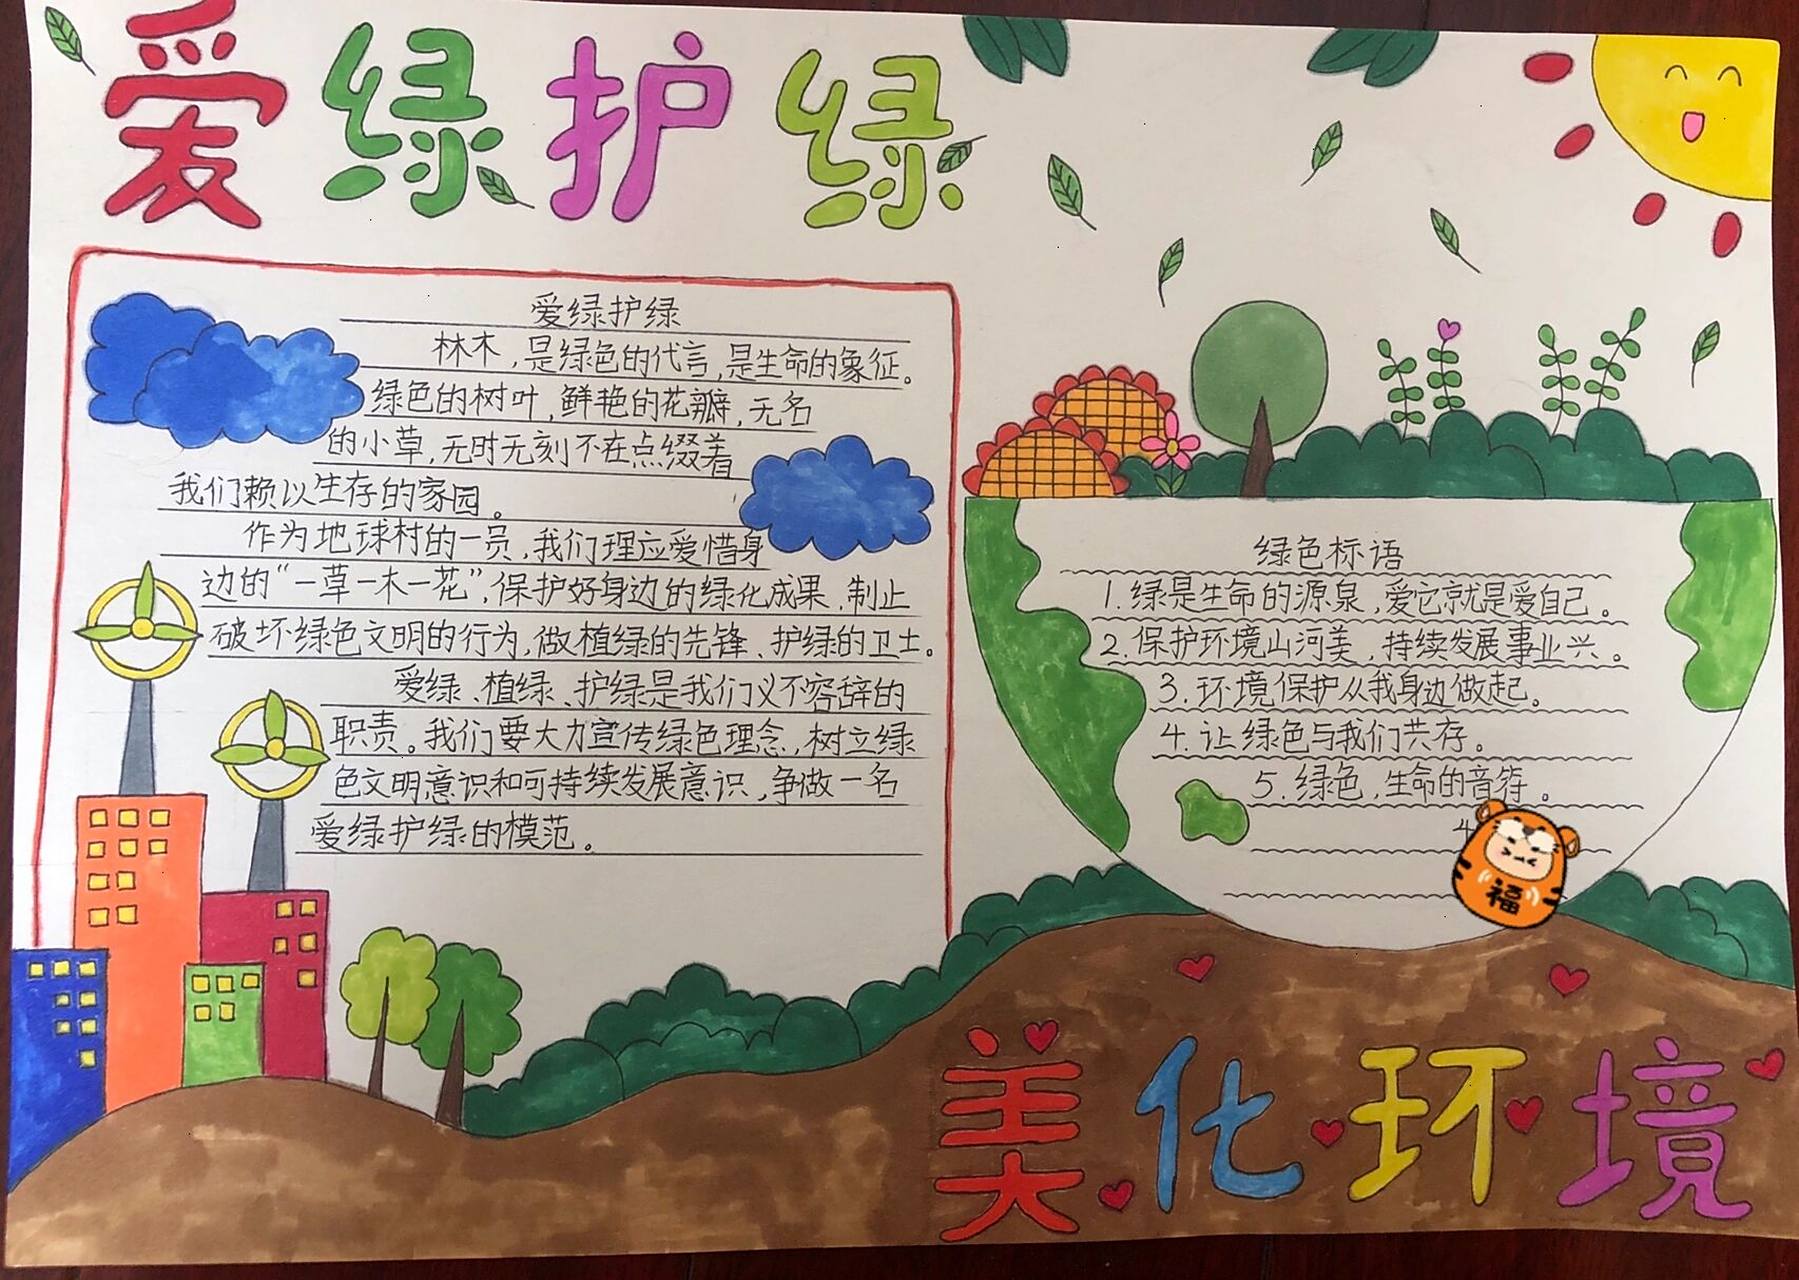 爱绿护绿
爱绿护绿
林木,是绿色的代言,是生命的象征。
绿色的树叶,鲜艳的花瓣,无名
的小草,无时无刻不在点缀着
我们赖以生存的家园。
作为地球村的一员,我们理应爱惜身
边的“一草一木一花”,保护好身边的绿化成果、制止
破坏绿色文明的行为,做植绿的先锋、护绿的卫士。
爱绿、植绿、护绿是我们义不容辞的
职责。我们要大力宣传绿色理念,树立绿
色文明意识和可持续发展意识,争做一名
爱绿护绿的模范。
绿色标语
1.绿是生命的源泉,爱它就是爱自己。
2.保护环境山河美,持续发展事业兴。
3.环境保护从我身边做起。
4.让绿色与我们共存。
5.绿色,生命的音符。
福
美化环境